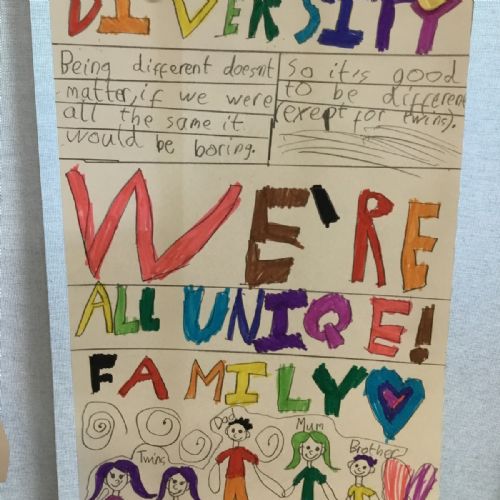 DIVERSITY
Being different doesnt
matter, if we were
all the same it
would be boring.
So it is good
to be differen
(exept for twins).
WE'RE
ALL UNIQE!
FAMILY
Dad
Mum
Brother
Twins